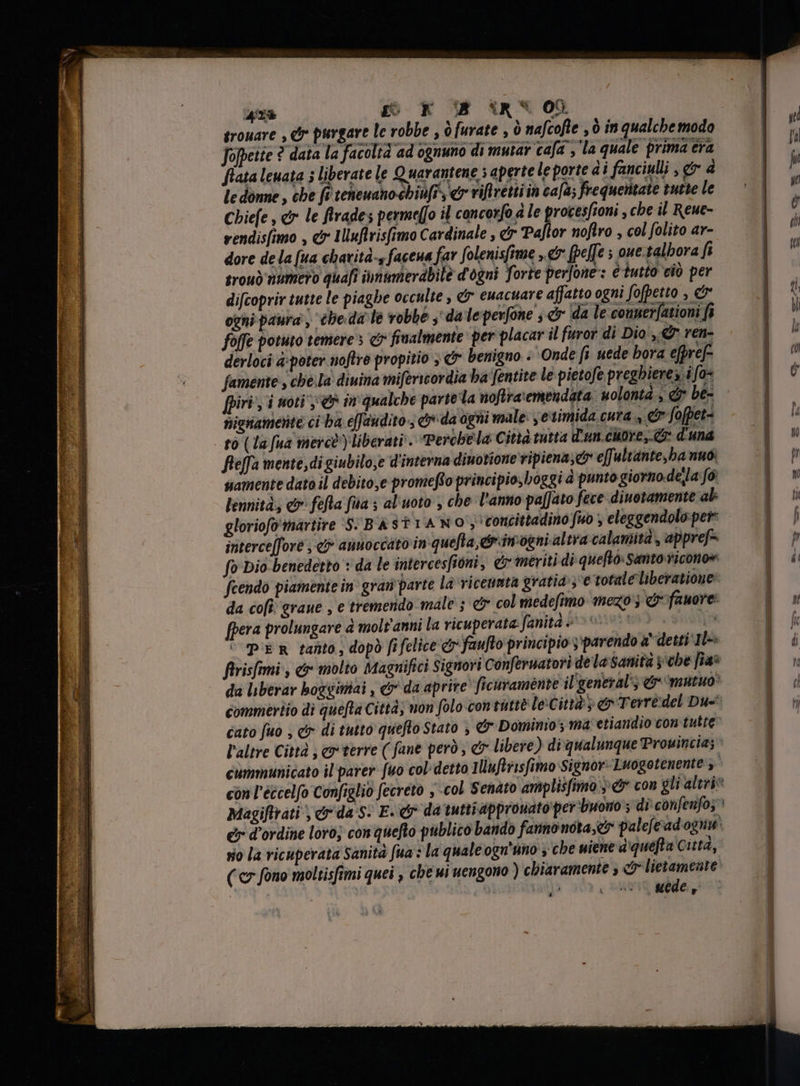 trouare, & purgare le robbe, ò furate, ò nascoste, ò in qualche modo
sospette? data la facoltà ad ognuno di mutar casa, la quale prima era
stata leuata; liberate le Quarantene; aperte le porte ài fanciulli, & à
le donne, che si teneuano chiusi, & ristretti in casa; frequentate tutte le
Chiese, & le strades permesso il concorso à le procesſioni, che il Reue-
rendisſimo, & Illustrisſimo Cardinale, & Pastor nostro, col solito ar-
dore de la sua charità, faceua far solenisſime, & spesse; oue talhora si
trouò numero quasi innumerabile d'ogni sorte persone: è tutto ciò per
discoprir tutte le piaghe occulte, & euacuare affatto ogni sospetto, &
ogni paura, che da le robbe, da le persone, & da le conuersationi si
fosse potuto temere; & finalmente per placar il furor di Dio, & ren-
derloci à poter nostro propitio, & benigno. Onde si uede hora espres-
samente, che la diuina misericordia ha sentite le pietose preghiere, i so-
spiri, i uoti, & in qualche parte la nostra emendata uolontà, & be-
nignamente ci ha essaudito, & da ogni male, e timida cura, & sospet-
to (la sua mercè) liberati. Perche la Città tutta d'un cuore, & d'una
stessa mente, di giubilo, e d'interna diuotione ripiena, & essultante, ha nuo
uamente dato il debito, e promesso principio, hoggi à punto giorno de la so
lennità, & festa sua; al uoto, che l'anno passato fece diuotamente al
glorioso martire S. BASTIANO, concittadino suo, eleggendolo per
intercessore, & auuoccato in questa, & in ogni altra calamità, appres-
so Dio benedetto: da le intercesſioni, & meriti di questo Santo ricono-
scendo piamente in gran parte la riceuuta gratia, e totale liberatione
da cosi graue, e tremendo male; & col medesimo mezo, & fauore
spera prolungare à molt'anni la ricuperata sanità.
PER tanto, dopò si felice & fausto principio, parendo a' detti Il-
strisſimi, & molto Magnifici Signori Conseruatori de la Sanità, che sia
da liberar hoggimai, & da aprire sicuramente il general, & mutuo
commertio di questa Città, non solo con tutte le Città, & Terre del Du-
cato suo, & di tutto questo Stato, & Dominio; ma etiandio con tutte
l'altre Città, & terre (sane però, & libere) di qualunque Prouincia;
cummunicato il parer suo col detto Illustrisſimo Signor Luogotenente,
con l'eccelso Consiglio secreto, col Senato amplisſimo, & con gli altri
Magistrati, & da S. E. & da tutti approuato per buono; di consenso,
& d'ordine loro, con questo publico bando fanno nota, & palese ad ognu
no la ricuperata Sanità sua: la quale ogn'uno, che uiene à questa Città,
(& sono moltisſimi quei, che ui uengono) chiaramente, & lietamente
uede,